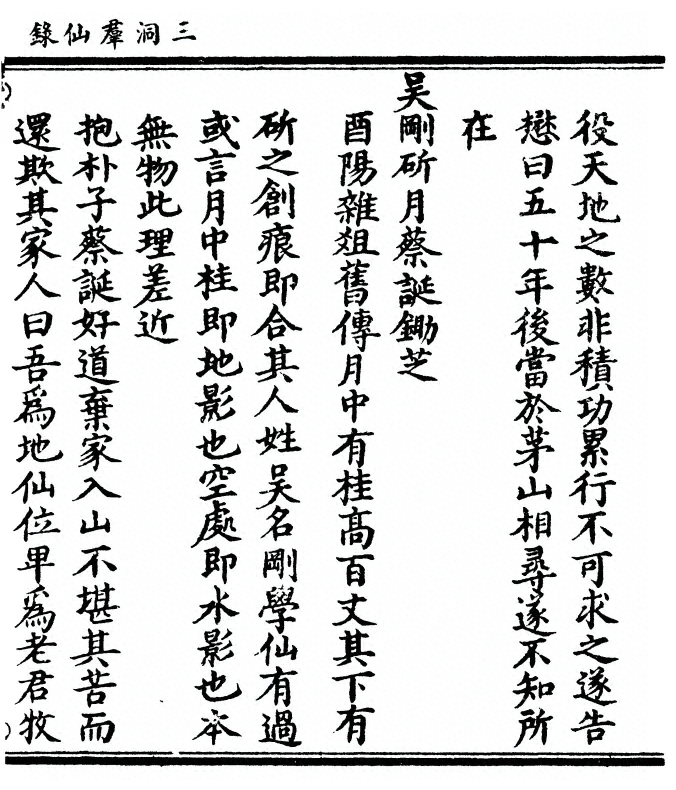 三洞羣仙錄
役天地之數非積功累行不可求之遂告
懋曰五十年後當於茅山相尋遂不知所
在
吴剛斫月蔡誕鋤芝
酉陽雜爼舊傳月中有桂高百丈其下有
斫之創痕即合其人姓吴名剛學仙有過
或言月中桂即地影也空處即水影也本
無物此理差近
抱朴子蔡誕好道棄家入山不堪其苦而
還欺其家人曰吾爲地仙位卑爲老君牧